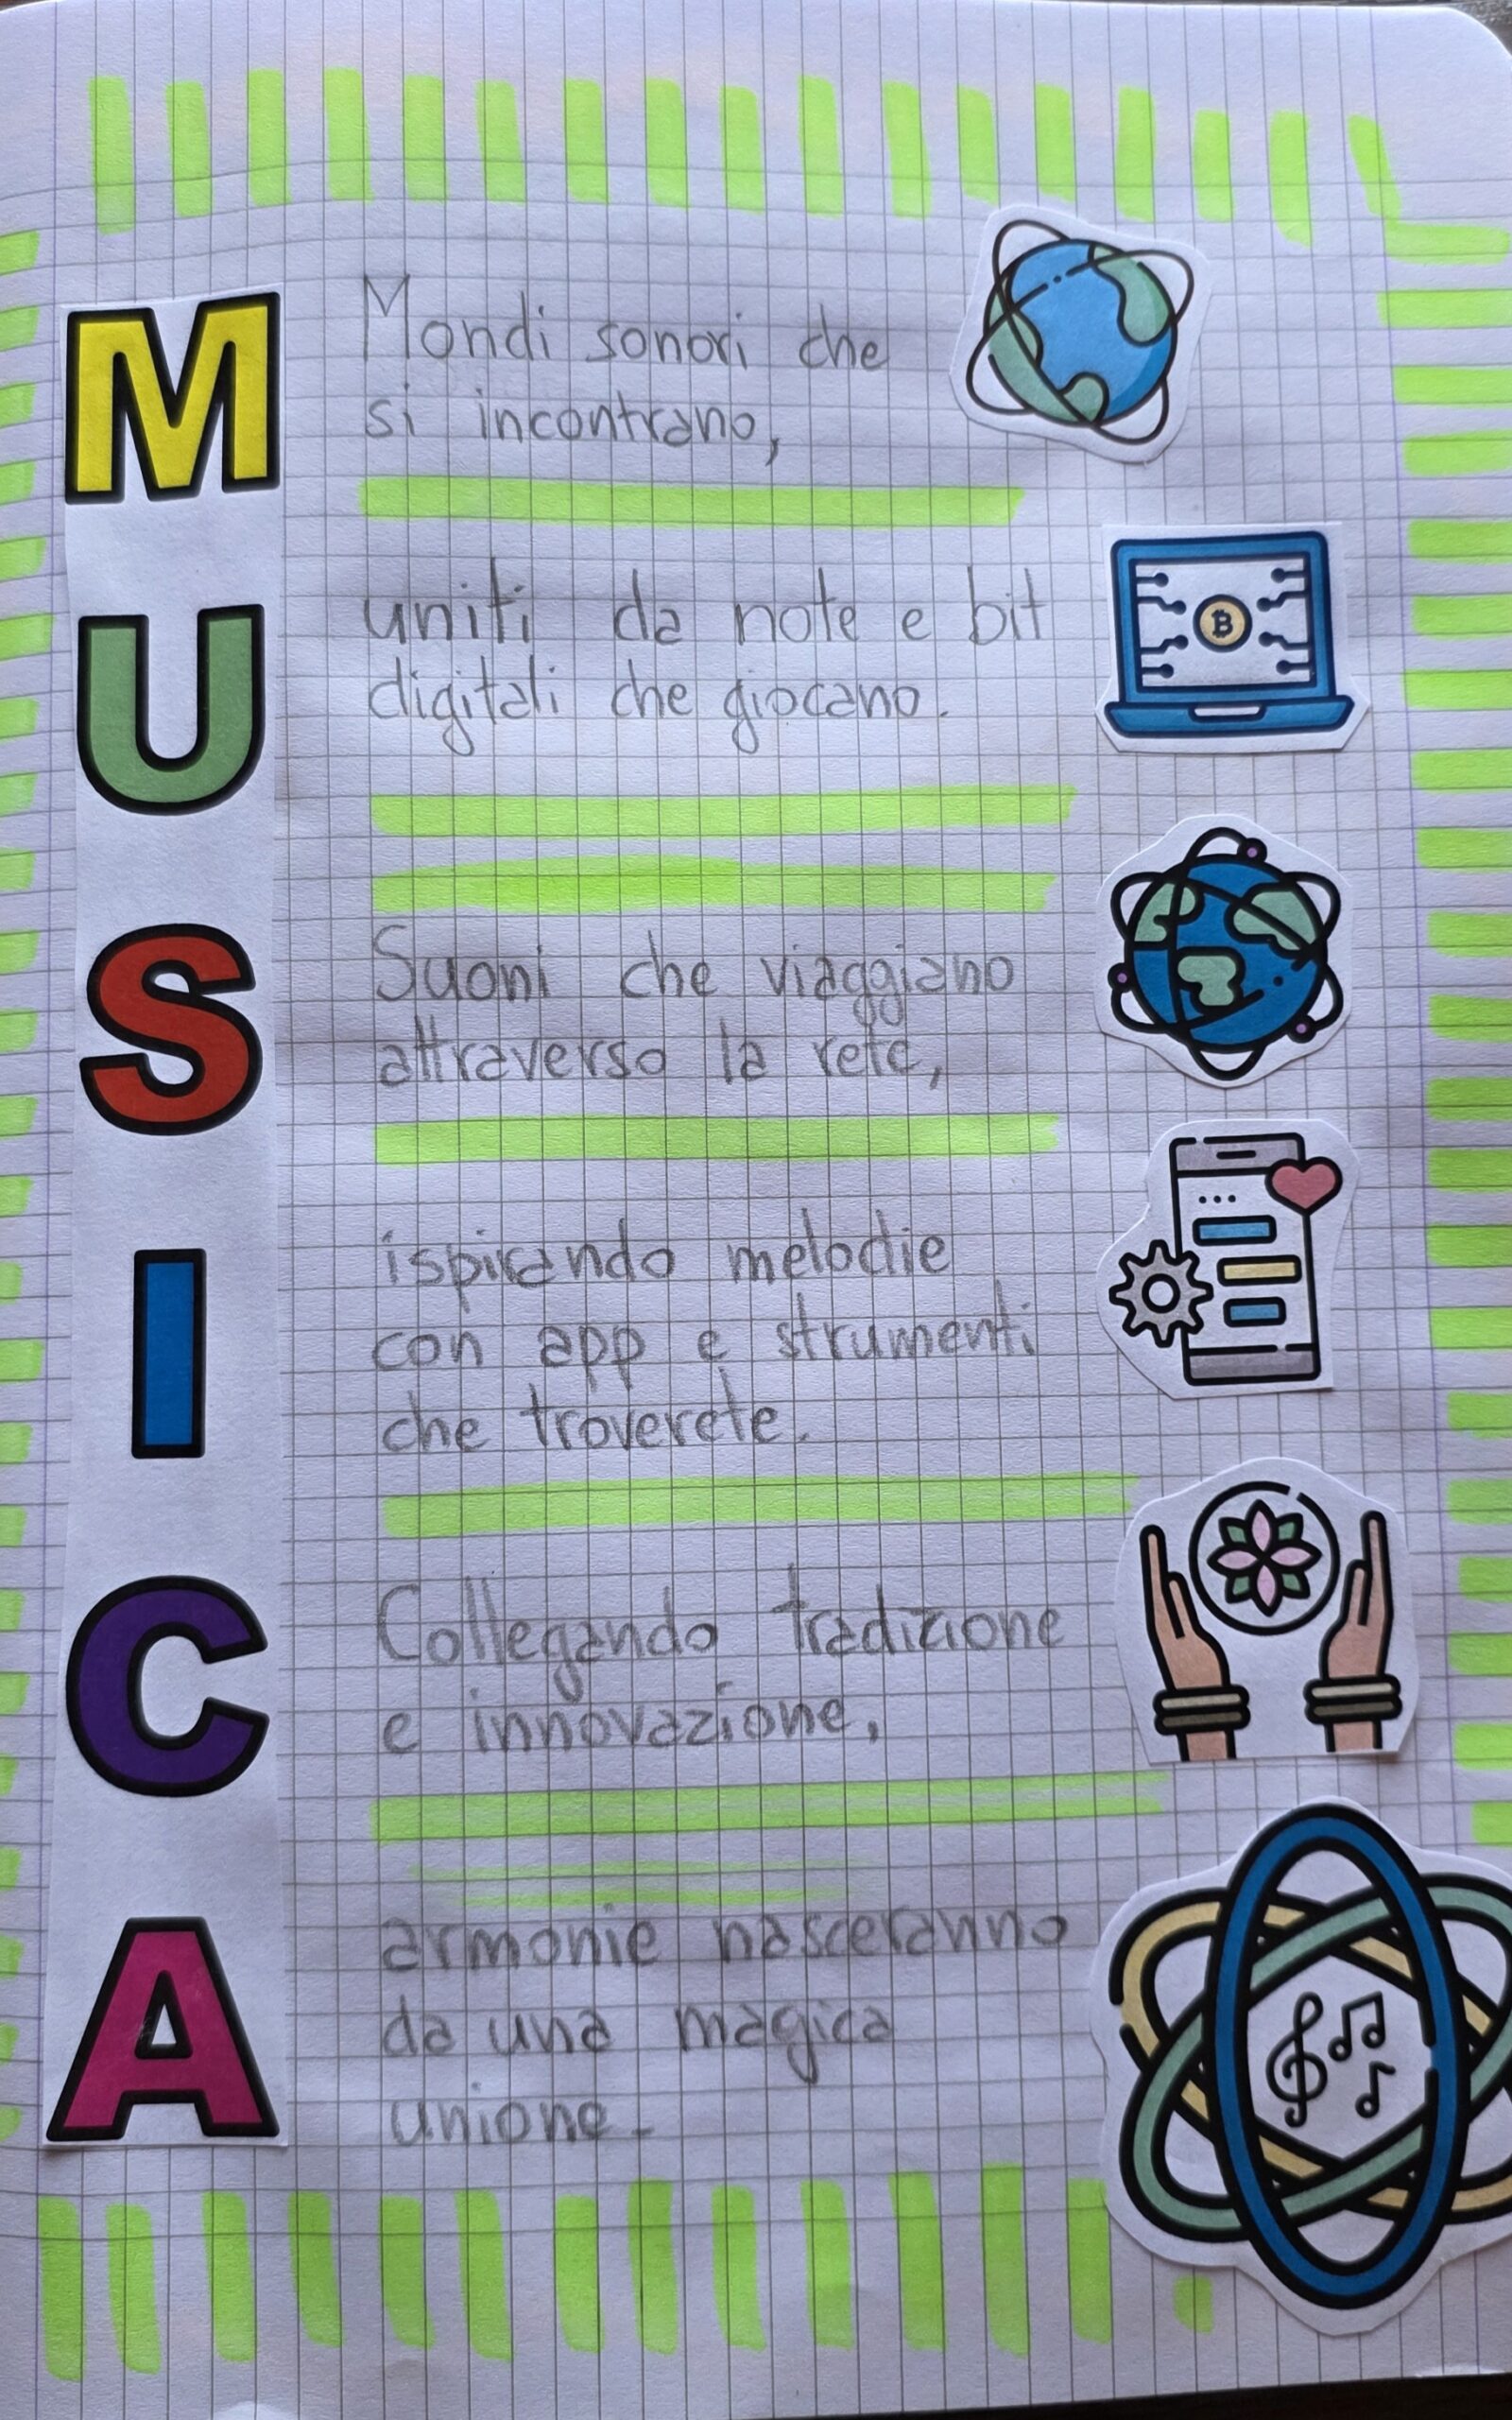 M
Mondi sonori che
si incontrano,
U
uniti da note e bit
digitali che giocano.
S
Suoni che viaggiano
attraverso la rete,
I
ispirando melodie
con app e strumenti
che troverete.
C
Collegando tradizione
e innovazione,
A
armonie nasceranno
da una magica
unione.